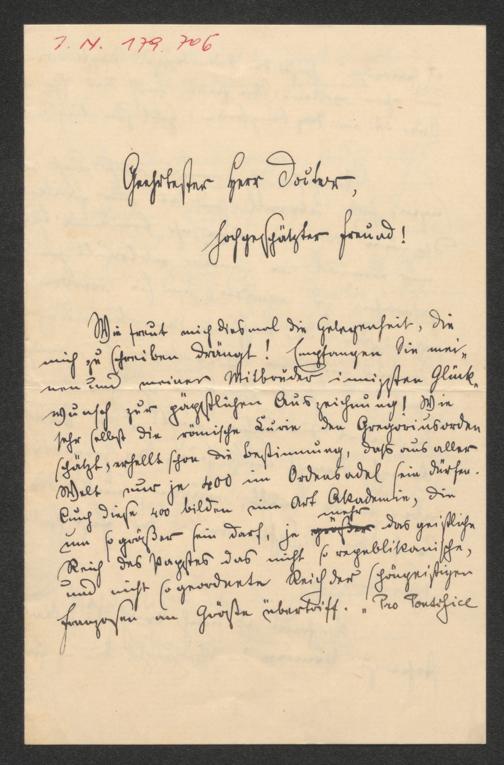 I. N. 179.706
Geehrtester Herr Doctor,
hochgeschätzter Freund!
Wie freut mich diesmal die Gelegenheit, die
mich zu schreiben drängt! Empfangen Sie mei-
nen und meiner Mitbrüder innigsten Glück-
wunsch zur päpstlichen Auszeichnung! Wie
sehr selbst die römische Curie den Gregoriusorden
schätzt, erhellt schon die Bestimmung, dass aus aller
Welt nur je 400 im Ordensadel sein dürfen.
Auch diese 400 bilden eine Art Akademie, die
um so größer sein darf, je mehr das geistliche
Reich des Papstes das nicht so republikanische,
und nicht so geordnete Reich der schöngeistigen
Franzosen an Größe übertrifft. „Pro Pontifice